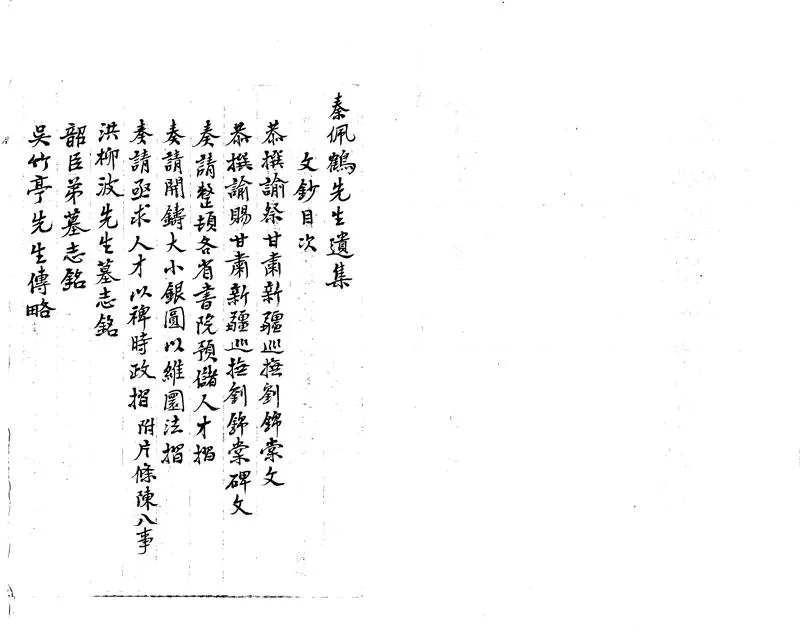 秦佩鶴先生遺集
文鈔目次
恭撰諭祭甘肅新疆巡撫劉錦棠文
恭撰諭賜甘肅新疆巡撫劉錦棠碑文
奏請整頓各省書院預儲人才摺
奏請開鑄大小銀圓以維圜法摺
奏請亟求人才以裨時政摺附片條陳八事
洪柳波先生墓志銘
韶臣弟墓志銘
吳竹亭先生傳略